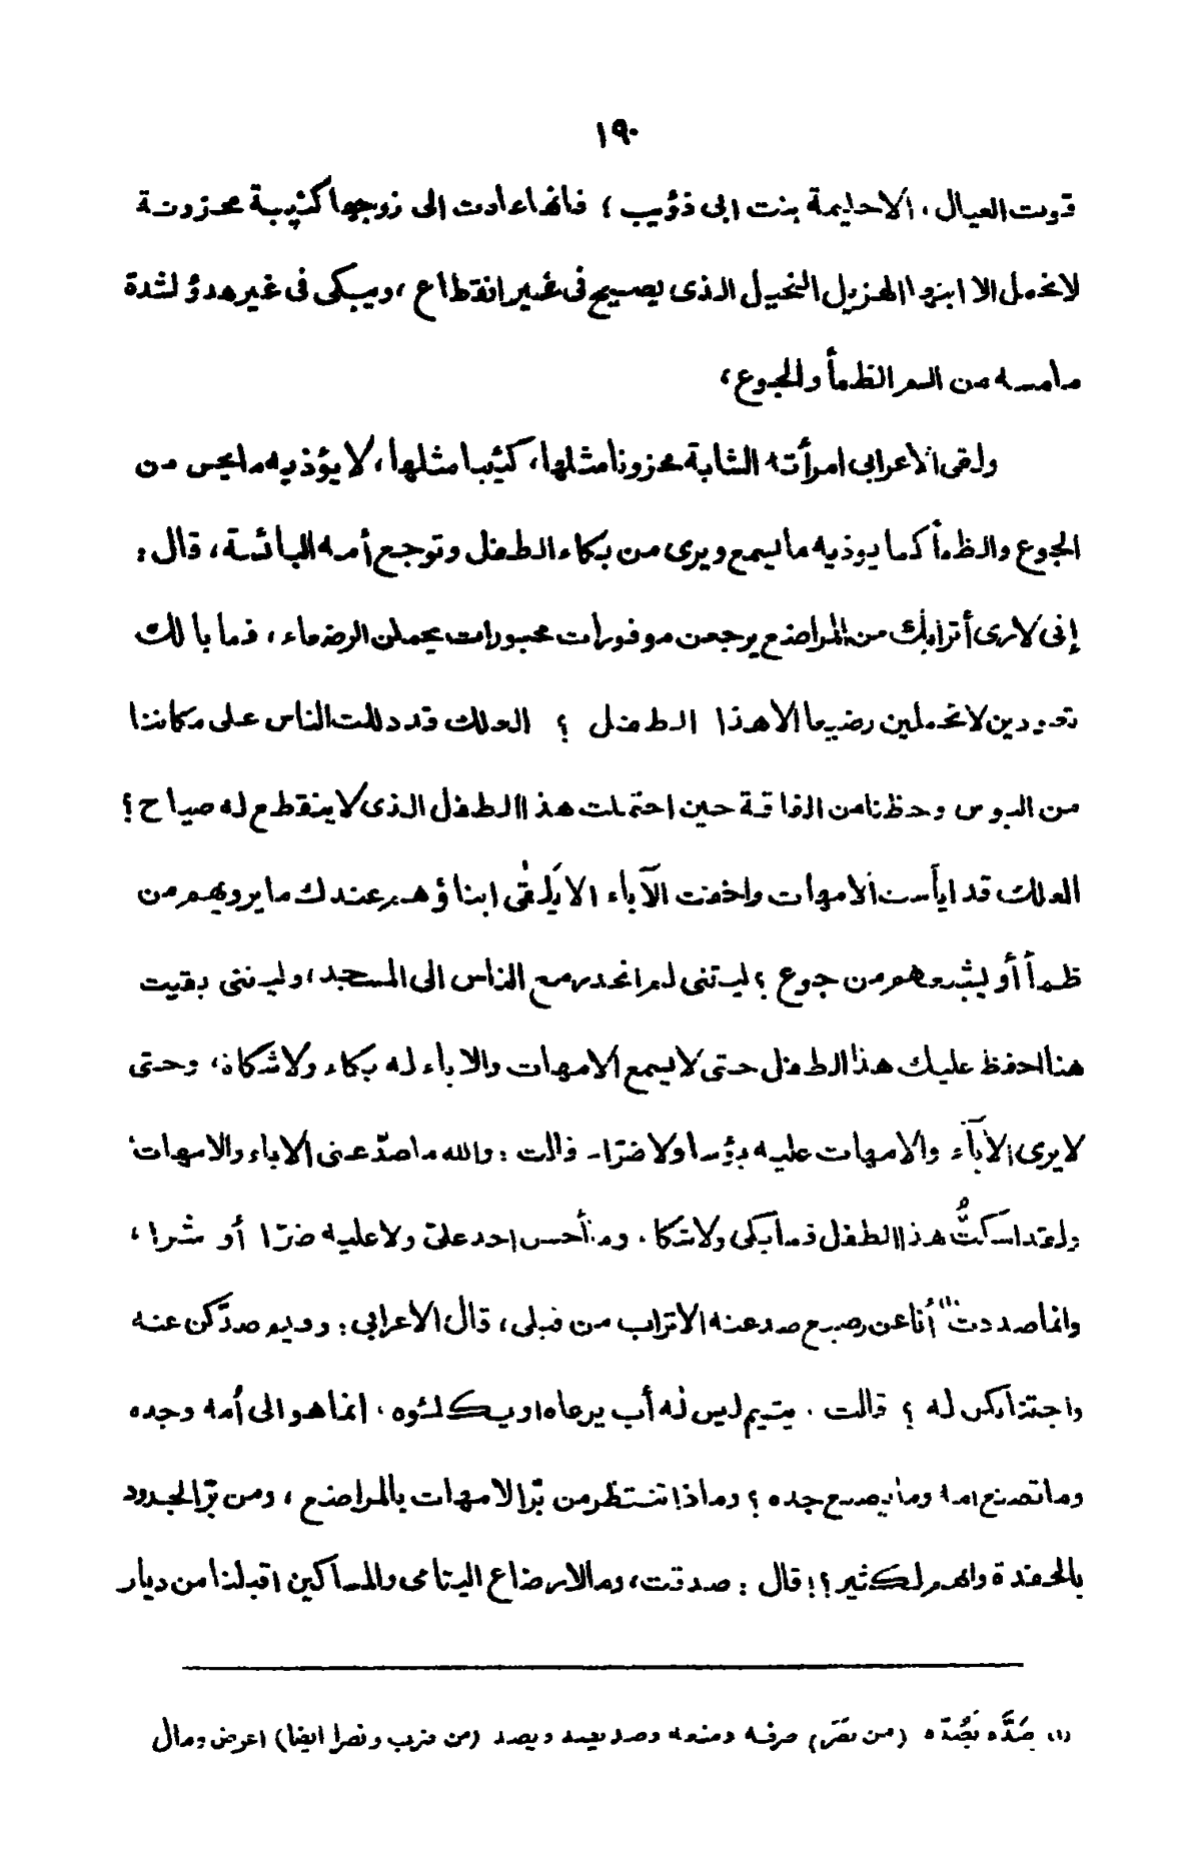 ١٩٠
قوت العيال، الا حليمة بنت ابى ذؤيب؛ فانها عادت الى زوجها كئيبة محزونة
لا تحمل الا ابنها الهزيل النحيل الذى يصيح فى غير انقطاع، ويبكى فى غير هدؤ لشدة
ما مسه من الم الظمأ والجوع،
ولقى الأعرابى امرأته الشابة محزونا مثلها، كئيبا مثلها، لا يؤذيه ما يحس من
الجوع والظمأ كما يوذيه ما يسمع ويرى من بكاء الطفل وتوجع أمه البائسة، قال:
إنى لارى أترابك من المراضع يرجعن موفورات محبورات يحملن الرضعاء، فما بالك
تعودين لا تحملين رضيعا الا هذا الطفل ؟ العلك قد دللت الناس على مكاننا
من البوس وحظنا من الفاقة حين احتملت هذا الطفل الذى لا ينقطع له صياح؟
العلك قد ايأست الامهات واخفت الآباء الا يَلقى ابناؤهم عندك ما يرويهم من
ظمأ أو يشبعهم من جوع ؟ ليتنى لم انحدر مع الناس الى المسجد، وليتنى بقيت
هنا احفظ عليك هذا الطفل حتى لا يسمع الامهات والاباء له بكاء ولا شكاة، وحتى
لا يرى الآبآء والامهات عليه بؤسا ولا ضرّا۔ قالت: والله ما صدّ عنى الاباء والامهات،
ولقد اسكتُّ هذا الطفل فما بكى ولا شكا. وما أحس احد علىّ ولا عليه ضرّا أو شرا،
وانما صددت⁽¹⁾ أنا عن رضيع صد عنه الاتراب من قبلى، قال الاعرابى: وفيم صدَّكن عنه
واجتنابكن له ؟ قالت. يتيم ليس له أب يرعاه او يكلئوه. انما هو الى أمه وجده
وما تصنع امه وما يصنع جده ؟ وماذا ننتظر من برّ الامهات بالمراضع، ومن برّ الجدود
بالحفدة وانهم لكثير ؟! قال: صدقت، وما لارضاع اليتامى والمساكين اقبلنا من ديار
(١) صَدَّه يَصُدّه (من نصَر) صرفه ومنعه وصد يصد ويصد (من ضرب ونصرا ايضا) اعرض ومال